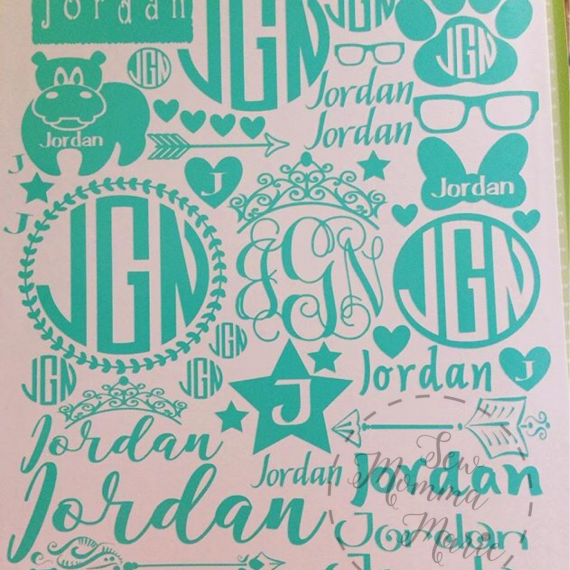 Jordan
JGN
JGN
JGN
JGN
Jordan
Jordan
Jordan
J
J
J
Jordan
JGN
JGN
JGN
JGN
JGN
JGN
J
Jordan
J
Jordan
Jordan
Jordan
Jordan
Jordan
Sew
Momma
Marie